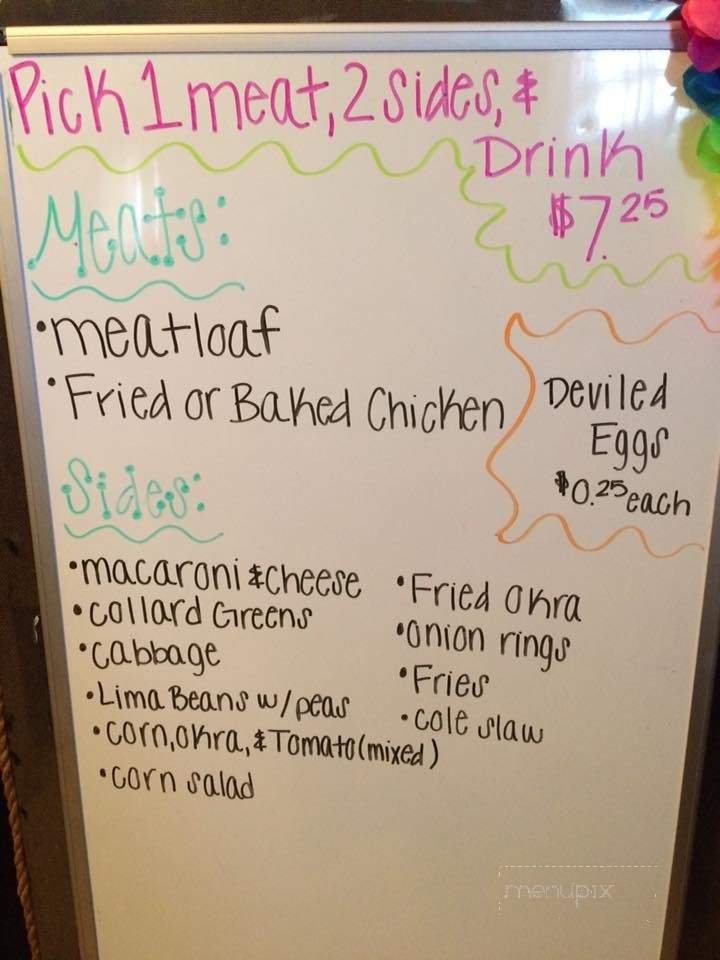 Pick 1 meat, 2 sides, &
Drink
$7.25
Meats:
•meatloaf
•Fried or Baked Chicken
Deviled
Eggs
$0.25 each
Sides:
•macaroni & cheese
•collard Greens
•cabbage
•Lima Beans w/peas
•corn, okra, & Tomato (mixed)
•corn salad
•Fried Okra
•onion rings
•Fries
•cole slaw
menupix